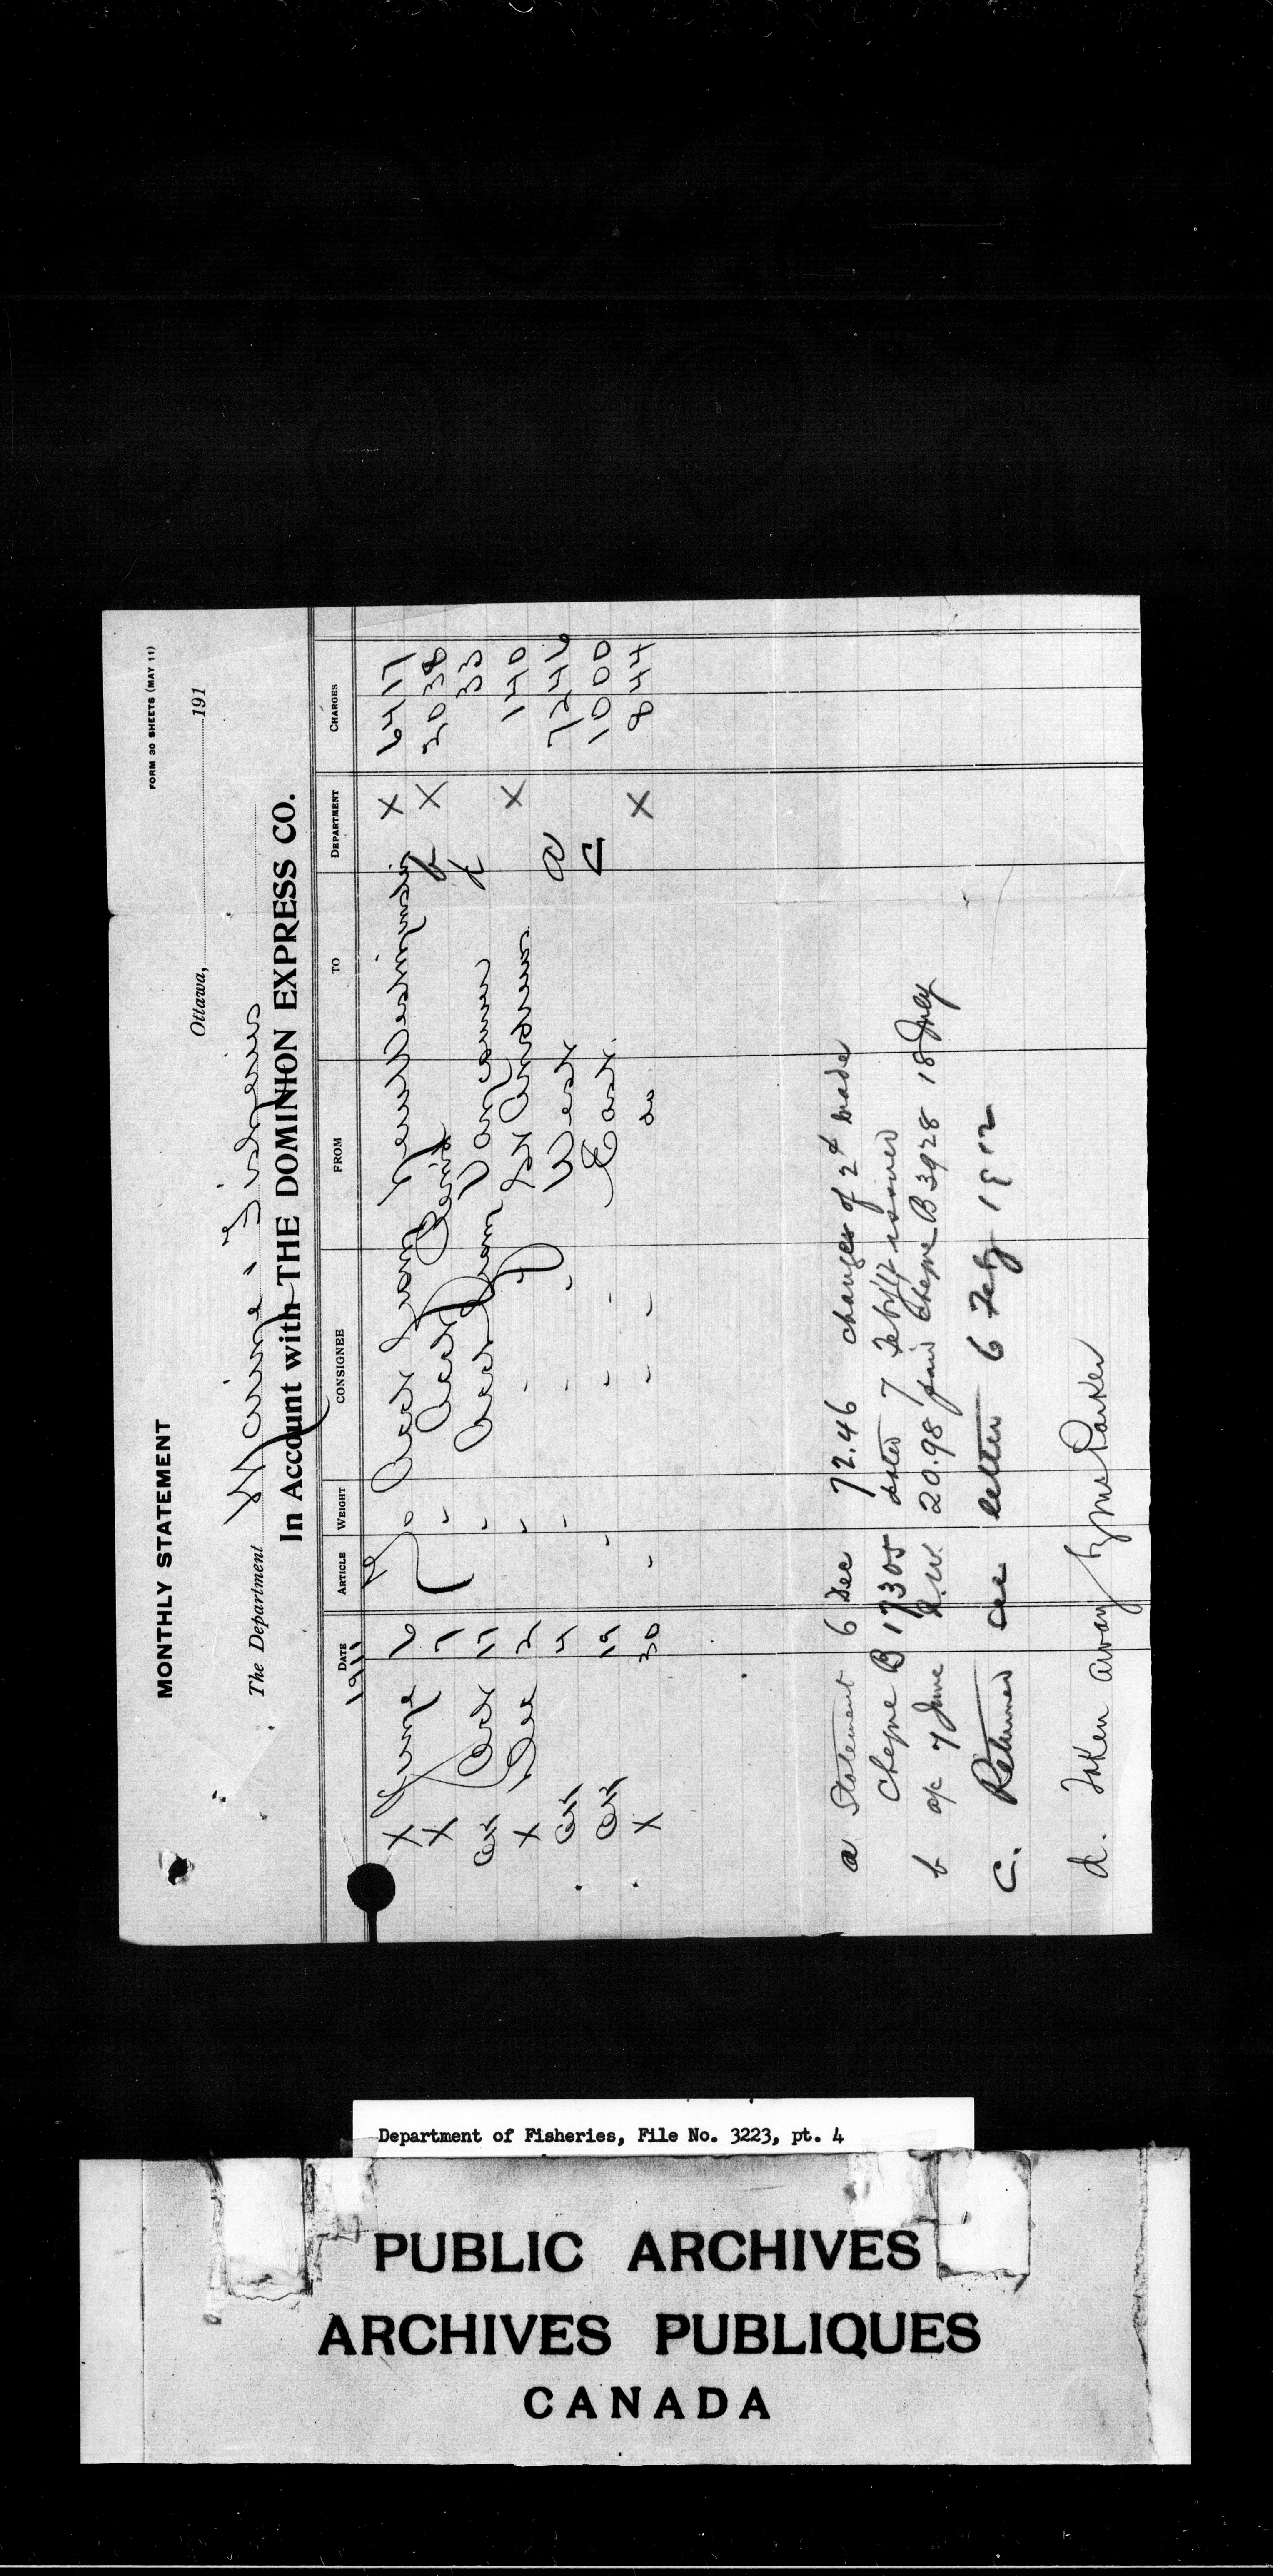 FORM 30 SHEETS (MAY 11)
MONTHLY STATEMENT
Ottawa, 191
The Department Marine & Fisheries
In Account with THE DOMINION EXPRESS CO.
DATE ARTICLE WEIGHT CONSIGNEE FROM TO DEPARTMENT CHARGES
1911
X June 6 To Acct from New Westminster X 6417
X " 7 " Acct X 2038
OK Oct 17 " Acct from Vancouver 33
X Dec 2 " " St Andrews X 140
OK 4 " " " West a 7246
OK 19 " " " East C 1000
X 30 " " " do X 844
a Statement 6 Dec 72.46 charges of 2d made
Cheque B 17305 dated 7 Feby/12 issued
b of 7 June N.W. 20.98 paid Cheque B 3928 18 July
C. Returned see letter 6 Feby 1912
d. Taken away by Mr Parker
Department of Fisheries, File No. 3223, pt. 4
PUBLIC ARCHIVES
ARCHIVES PUBLIQUES
CANADA